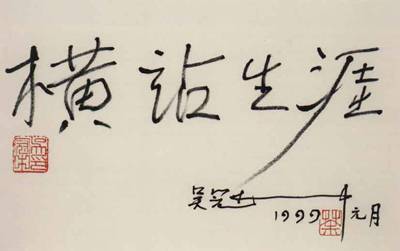 横站生涯
吴冠中
1999 元月